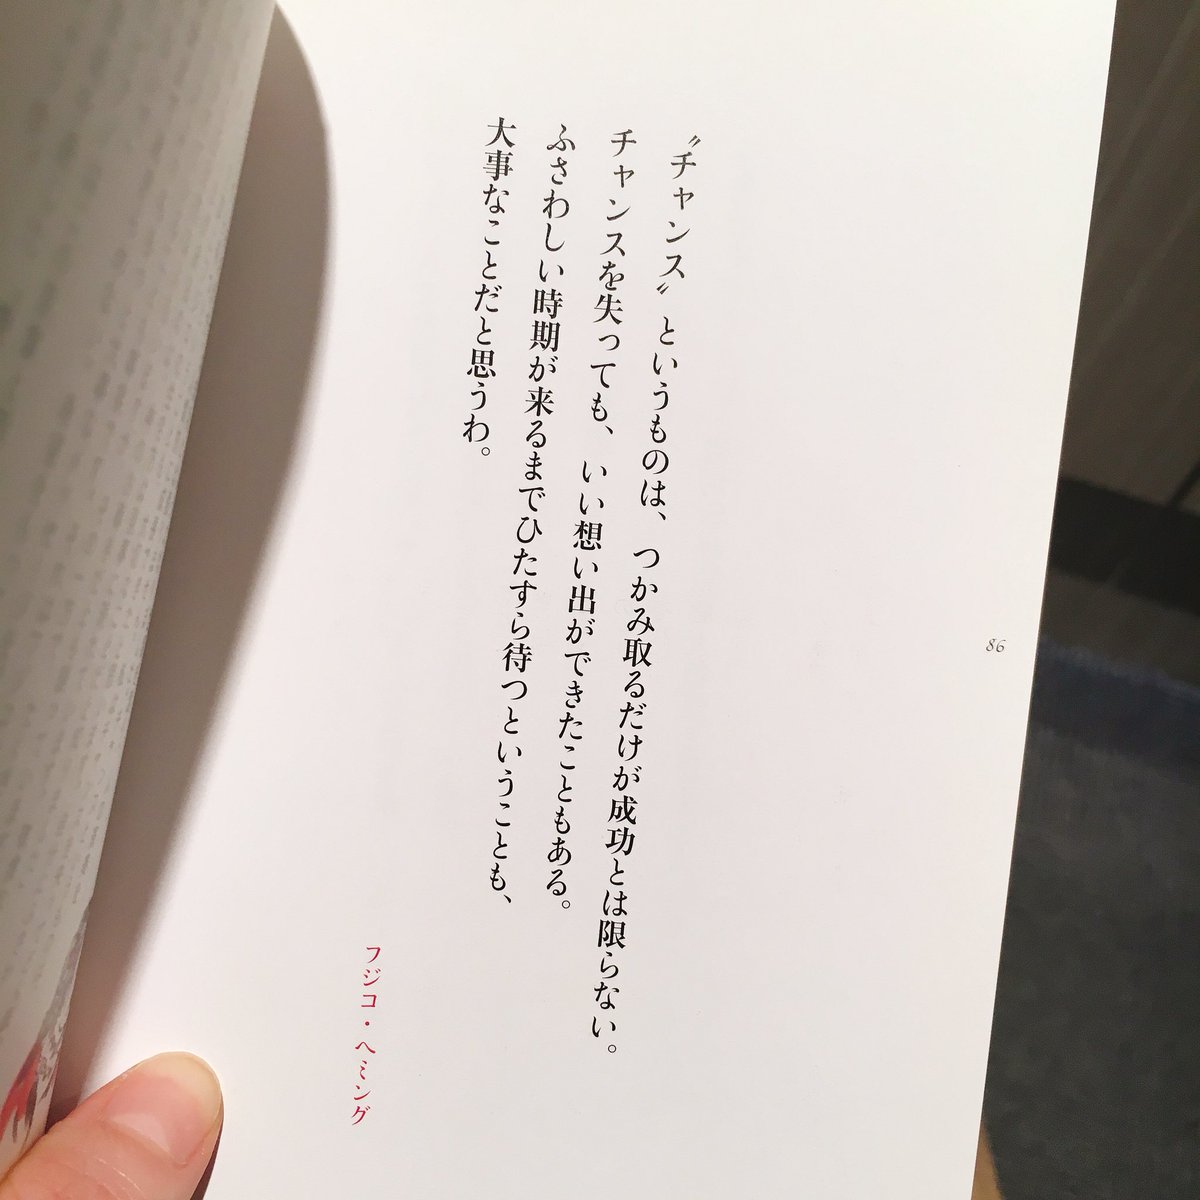 〝チャンス〟というものは、つかみ取るだけが成功とは限らない。
チャンスを失っても、いい想い出ができたこともある。
ふさわしい時期が来るまでひたすら待つということも、
大事なことだと思うわ。
フジコ・ヘミング
86